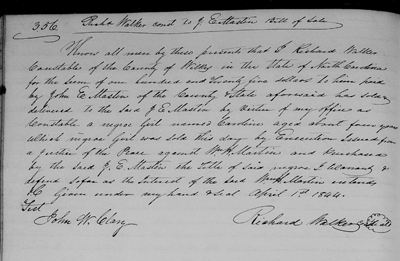 356 Richd Walker const to J E Masten Bill of Sale
Know all men by these present that I Richard Walker
Constable of the County of Wilkes in the State of North Carolina
for the Sum of one hundred and Twenty five dollars to him paid
by John E Masten of the County & State aforesaid has sold
delivered to the Said J E Masten by virtue of my office as
Constable a negro Girl named Caroline aged about four years
which negro Girl was sold this day by Execution Issued from
a justice of the Peace against W. H. Masten and purchased
by the Said J. E. Masten the Title of Said negro I Warranty &
defend So far as the Interest of the Said Wm H Masten extends
&C Given under my hand & Seal April 1st 1844.
Test
John W. Clary Richard Walker Seal